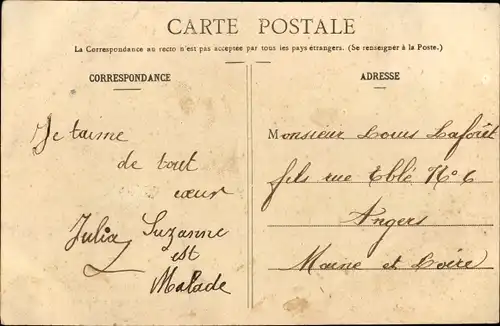 CARTE POSTALE
La Correspondance au recto n'est pas acceptée par tous les pays étrangers. (Se renseigner à la Poste.)
CORRESPONDANCE
Je t'aime
de tout
cœur
Julia
Suzanne
est
Malade
ADRESSE
Monsieur Louis Laforêt
fils rue Eblé N° 6
Angers
Maine et Loire